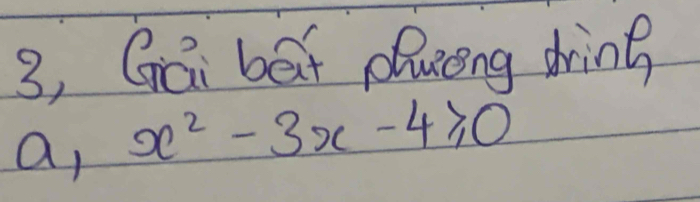 3, Giải bất phương trình
a, x² - 3x - 4 ⩾ 0